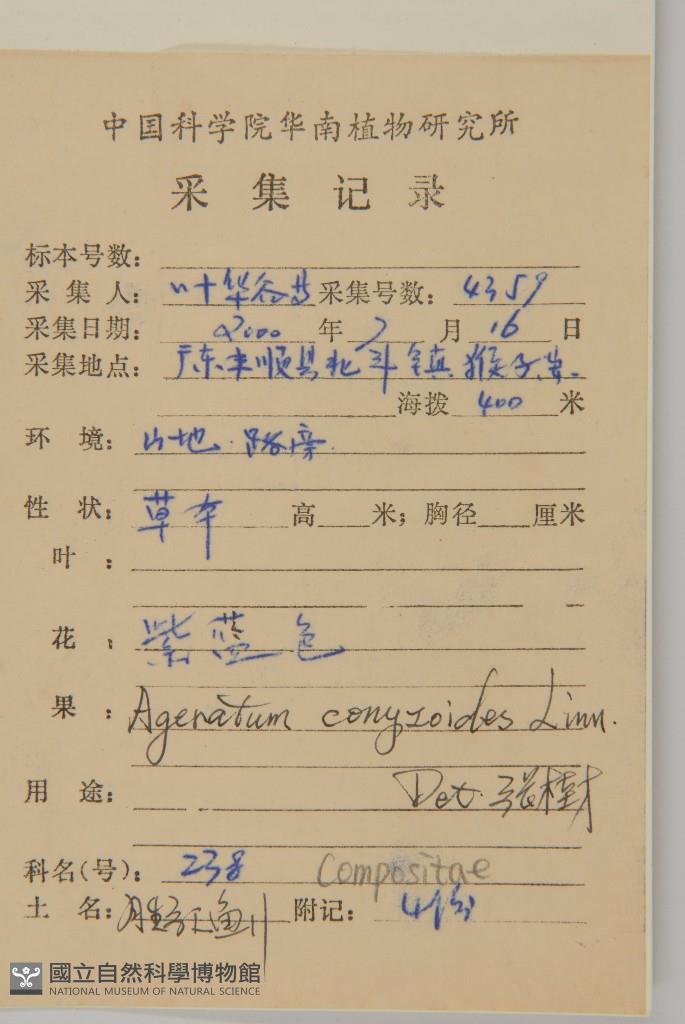 中国科学院华南植物研究所
采集记录
标本号数：
采集人：叶华谷等 采集号数：4359
采集日期：2000年7月16日
采集地点：广东丰顺县北斗镇猴子岽.
海拨 400 米
环境：山地.路旁.
性状：草本 高 米；胸径 厘米
叶：
花：紫蓝色
果：Ageratum conyzoides Linn.
用途： Det.
科名(号)：238 Compositae
土名：胜红蓟 附记：4份
國立自然科學博物館
NATIONAL MUSEUM OF NATURAL SCIENCE